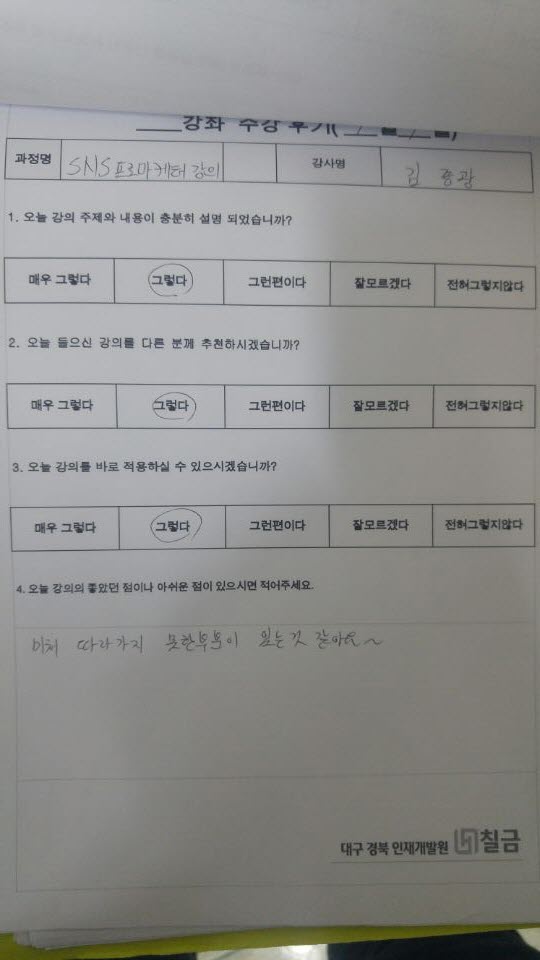 강좌 수강 후기( / 월 / 일)
과정명 SNS프로마케터 강의 강사명 김 광
1. 오늘 강의 주제와 내용이 충분히 설명 되었습니까?
매우 그렇다 그렇다 그런편이다 잘모르겠다 전혀그렇지않다
2. 오늘 들으신 강의를 다른 분께 추천하시겠습니까?
매우 그렇다 그렇다 그런편이다 잘모르겠다 전혀그렇지않다
3. 오늘 강의를 바로 적용하실 수 있으시겠습니까?
매우 그렇다 그렇다 그런편이다 잘모르겠다 전혀그렇지않다
4. 오늘 강의의 좋았던 점이나 아쉬운 점이 있으시면 적어주세요.
미처 따라가지 못한부분이 있는것 같아요~
대구 경북 인재개발원 칠금